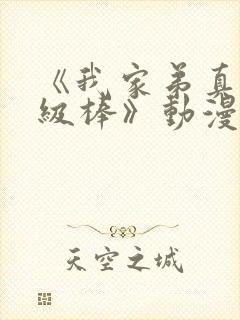 《我家弟真
級棒》動漫
天空之城